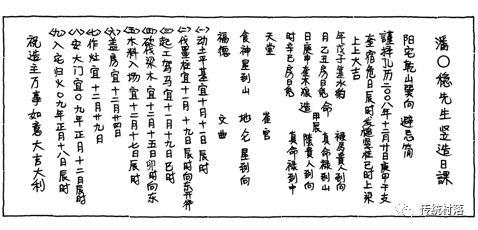 潘〇德先生竖造日课
阳宅乾山巽向 避忌简
谨择孔历二〇〇八年十二月廿日庚申干支
奎宿危日辰时发锤竖柱巳时上梁
上上大吉
年戊子 禄马贵人到向
月乙丑房日兔 命 真命禄到山
日庚申奎木狼 造 甲辰 阴贵人到向
时辛巳房日兔 真命禄到中
天堂 崔官
食神星到山 地元星到向
福德 文曲
(一)动土平基宜十月十日辰时
(二)伐墨柱宜十一月十九日辰时向东开斧
(三)起工驾马宜十一月十九日巳时
(四)砍伐梁木宜十二月十五日卯时向东
(五)木料入场宜十二月十七日辰时
(六)盖房宜十二月廿四日
(七)作灶宜十二月廿九日
(八)安大门宜〇九年正月十二日辰时
(九)入宅归火〇九年正月十八日辰时
祝造主万事如意大吉大利
传统村落